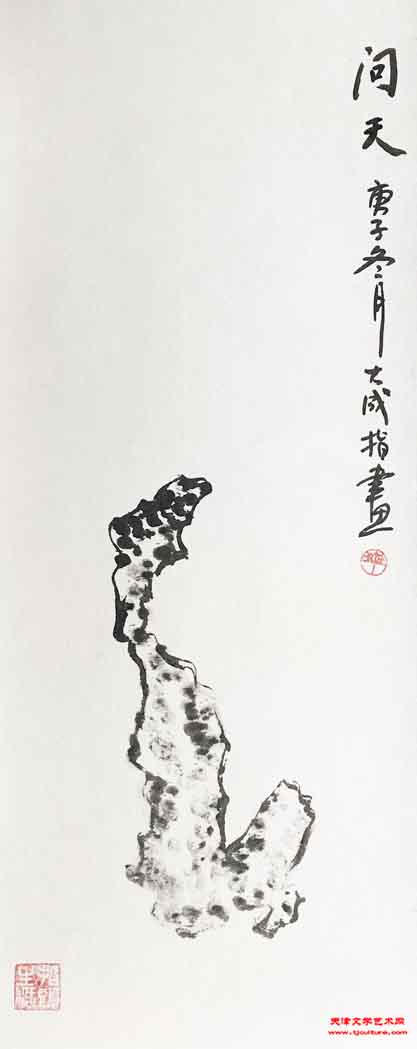 问天
庚子冬月大成指画
天津文学艺术网
www.tjculture.com